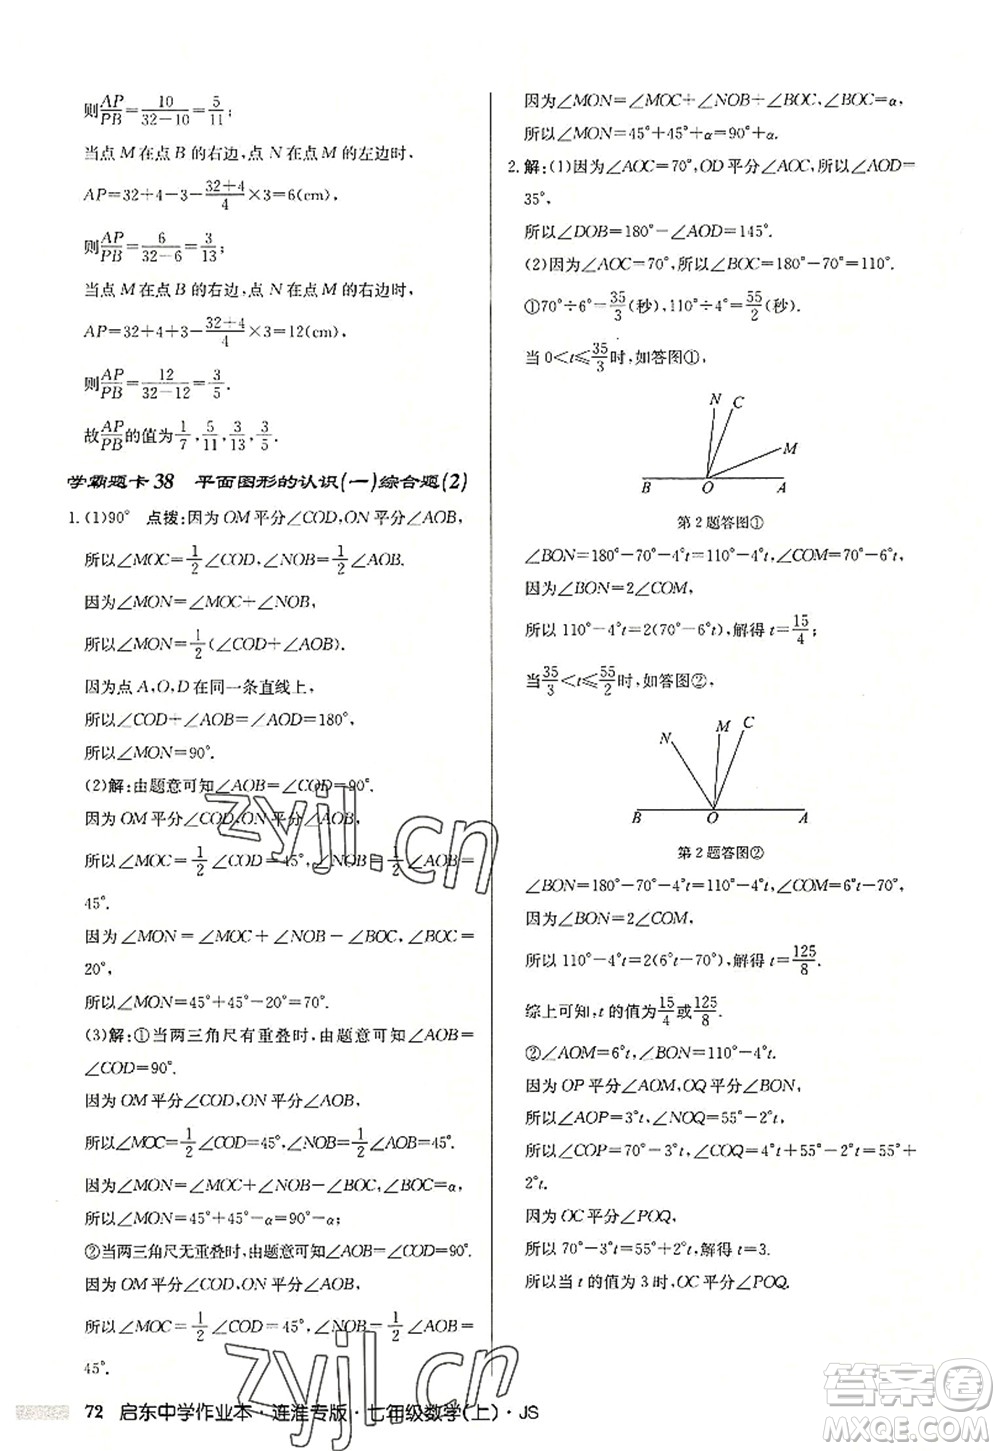 则AP/PB=10/(32-10)=5/11;
当点M在点B的右边,点N在点M的左边时,
AP=32+4-3-(32+4)/4×3=6(cm),
则AP/PB=6/(32-6)=3/13;
当点M在点B的右边,点N在点M的右边时,
AP=32+4+3-(32+4)/4×3=12(cm),
则AP/PB=12/(32-12)=3/5.
故AP/PB的值为1/7,5/11,3/13,3/5.
学霸题卡38 平面图形的认识(一)综合题(2)
1.(1)90° 点拨:因为OM平分∠COD,ON平分∠AOB,
所以∠MOC=1/2∠COD,∠NOB=1/2∠AOB.
因为∠MON=∠MOC+∠NOB,
所以∠MON=1/2(∠COD+∠AOB).
因为点A,O,D在同一条直线上,
所以∠COD+∠AOB=∠AOD=180°,
所以∠MON=90°.
(2)解:由题意可知∠AOB=∠COD=90°.
因为OM平分∠COD,ON平分∠AOB,
所以∠MOC=1/2∠COD=45°,∠NOB=1/2∠AOB=
45°.
因为∠MON=∠MOC+∠NOB-∠BOC,∠BOC=
20°,
所以∠MON=45°+45°-20°=70°.
(3)解:①当两三角尺有重叠时,由题意可知∠AOB=
∠COD=90°.
因为OM平分∠COD,ON平分∠AOB,
所以∠MOC=1/2∠COD=45°,∠NOB=1/2∠AOB=45°.
因为∠MON=∠MOC+∠NOB-∠BOC,∠BOC=α,
所以∠MON=45°+45°-α=90°-α;
②当两三角尺无重叠时,由题意可知∠AOB=∠COD=90°.
因为OM平分∠COD,ON平分∠AOB,
所以∠MOC=1/2∠COD=45°,∠NOB=1/2∠AOB=
45°.
因为∠MON=∠MOC+∠NOB+∠BOC,∠BOC=α,
所以∠MON=45°+45°+α=90°+α.
2.解:(1)因为∠AOC=70°,OD平分∠AOC,所以∠AOD=
35°,
所以∠DOB=180°-∠AOD=145°.
(2)因为∠AOC=70°,所以∠BOC=180°-70°=110°.
①70°÷6°=35/3(秒),110°÷4°=55/2(秒).
当0<t≤35/3时,如答图①,
N C
M
B O A
第2题答图①
∠BON=180°-70°-4°t=110°-4°t,∠COM=70°-6°t,
因为∠BON=2∠COM,
所以110°-4°t=2(70°-6°t),解得t=15/4;
当35/3<t≤55/2时,如答图②,
N M C
B O A
第2题答图②
∠BON=180°-70°-4°t=110°-4°t,∠COM=6°t-70°,
因为∠BON=2∠COM,
所以110°-4°t=2(6°t-70°),解得t=125/8.
综上可知,t的值为15/4或125/8.
②∠AOM=6°t,∠BON=110°-4°t,
因为OP平分∠AOM,OQ平分∠BON,
所以∠AOP=3°t,∠NOQ=55°-2°t,
所以∠COP=70°-3°t,∠COQ=55°-2°t+4°t=55°+
2°t.
因为OC平分∠POQ,
所以70°-3°t=55°+2°t,解得t=3.
所以当t的值为3时,OC平分∠POQ.
zyjl.cn
zyjl.cn
答案圈
MXQE.COM
72 启东中学作业本·连淮专版·七年级数学(上)·JS